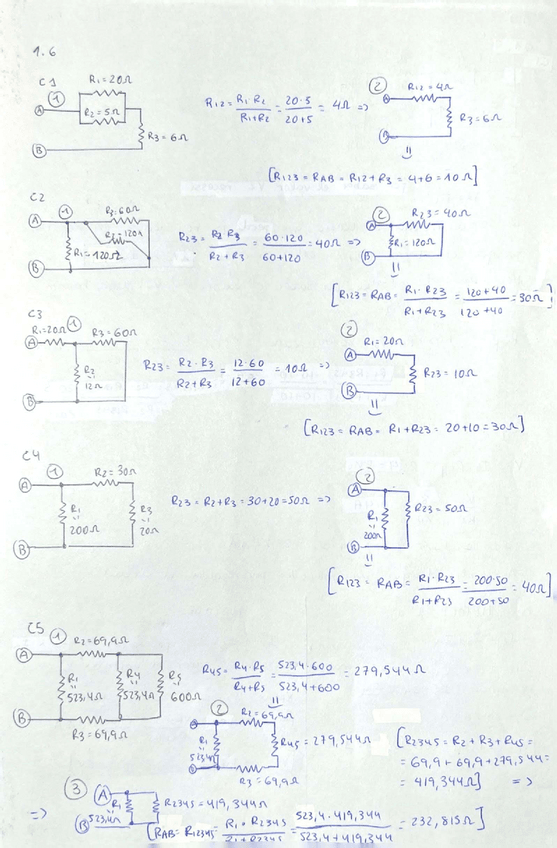 1.6
C1
1
R1=20Ω
R2=5Ω
R3=6Ω
A
B
R12 = R1·R2/R1+R2 = 20·5/20+5 = 4Ω =>
2
R12=4Ω
R3=6Ω
[R123 = RAB = R12+R3 = 4+6 = 10Ω]
C2
1
R3=60Ω
R2=120Ω
R1=120Ω
A
B
R23 = R2·R3/R2+R3 = 60·120/60+120 = 40Ω =>
2
R23=40Ω
R1=120Ω
A
B
[R123 = RAB = R1·R23/R1+R23 = 120+40/120+40 = 30Ω]
C3
1
R1=20Ω
R3=60Ω
R2=12Ω
A
B
R23 = R2·R3/R2+R3 = 12·60/12+60 = 10Ω =>
2
R1=20Ω
R23=10Ω
A
B
[R123 = RAB = R1+R23 = 20+10 = 30Ω]
C4
1
R2=30Ω
R1=200Ω
R3=20Ω
A
B
R23 = R2+R3 = 30+20 = 50Ω =>
2
R1=200Ω
R23=50Ω
A
B
[R123 = RAB = R1·R23/R1+R23 = 200·50/200+50 = 40Ω]
C5
1
R2=69,9Ω
R1=523,4Ω
R4=523,4Ω
R5=600Ω
R3=69,9Ω
A
B
R45 = R4·R5/R4+R5 = 523,4·600/523,4+600 = 279,544Ω
2
R2=69,9Ω
R1=523,4
R45=279,544Ω
R3=69,9Ω
[R2345 = R2+R3+R45 =
= 69,9+69,9+279,544=
= 419,344Ω] =>
=> 3
A
B
R1=523,4Ω
R2345=419,344Ω
[RAB = R12345 = R1·R2345/R1+R2345 = 523,4·419,344/523,4+419,344 = 232,815Ω]